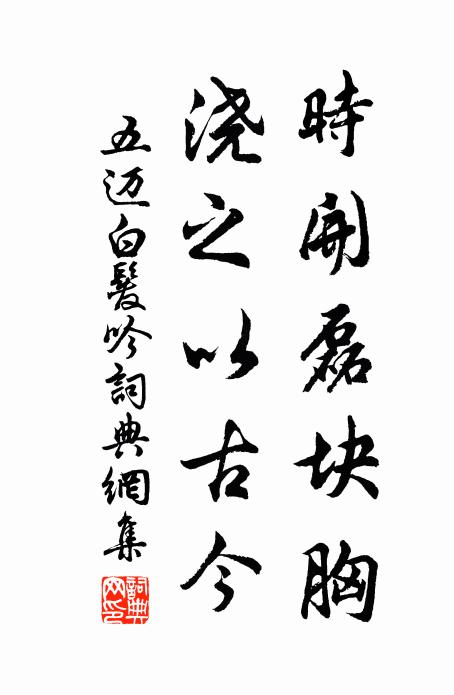 時開磊块胸
浇之以古今
五迈白髮吟詞典網集
詞典網印